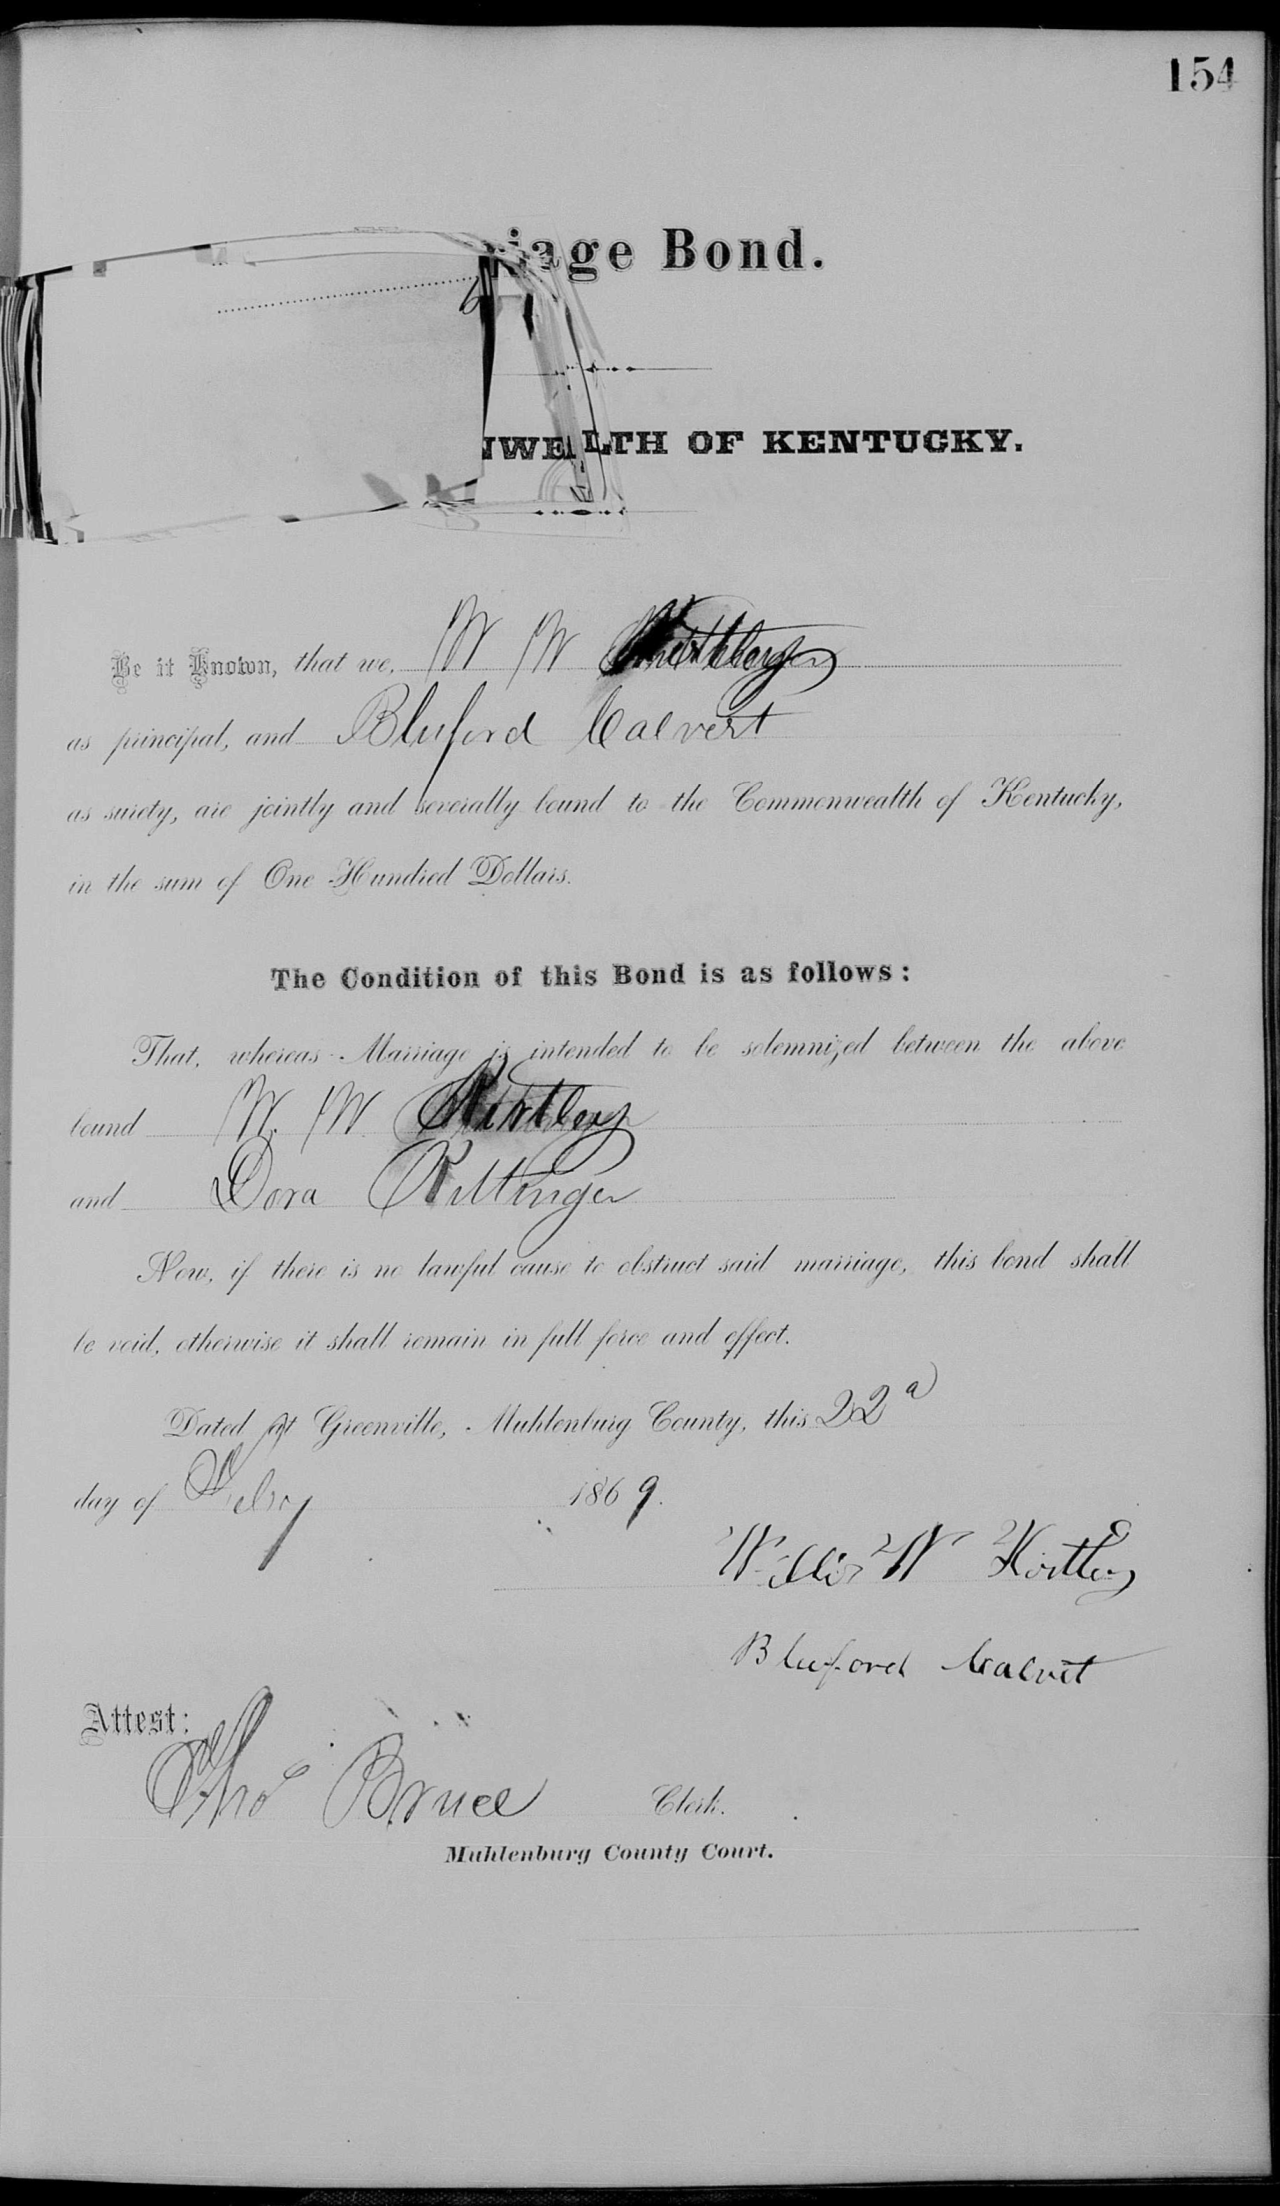 154
riage Bond.
NWEALTH OF KENTUCKY.
Be it Known, that we, W W
as principal, and Bluford Calvert
as surety, are jointly and severally bound to the Commonwealth of Kentucky,
in the sum of One Hundred Dollars.
The Condition of this Bond is as follows:
That, whereas Marriage is intended to be solemnized between the above
bound W. W. Kirtley
and Dora Kittinger
Now, if there is no lawful cause to obstruct said marriage, this bond shall
be void, otherwise it shall remain in full force and effect.
Dated at Greenville, Muhlenburg County, this 22d
day of Feby 1869.
Willis W Kirtley
Bluford Calvert
Attest:
Thos Bruce Clerk.
Muhlenburg County Court.